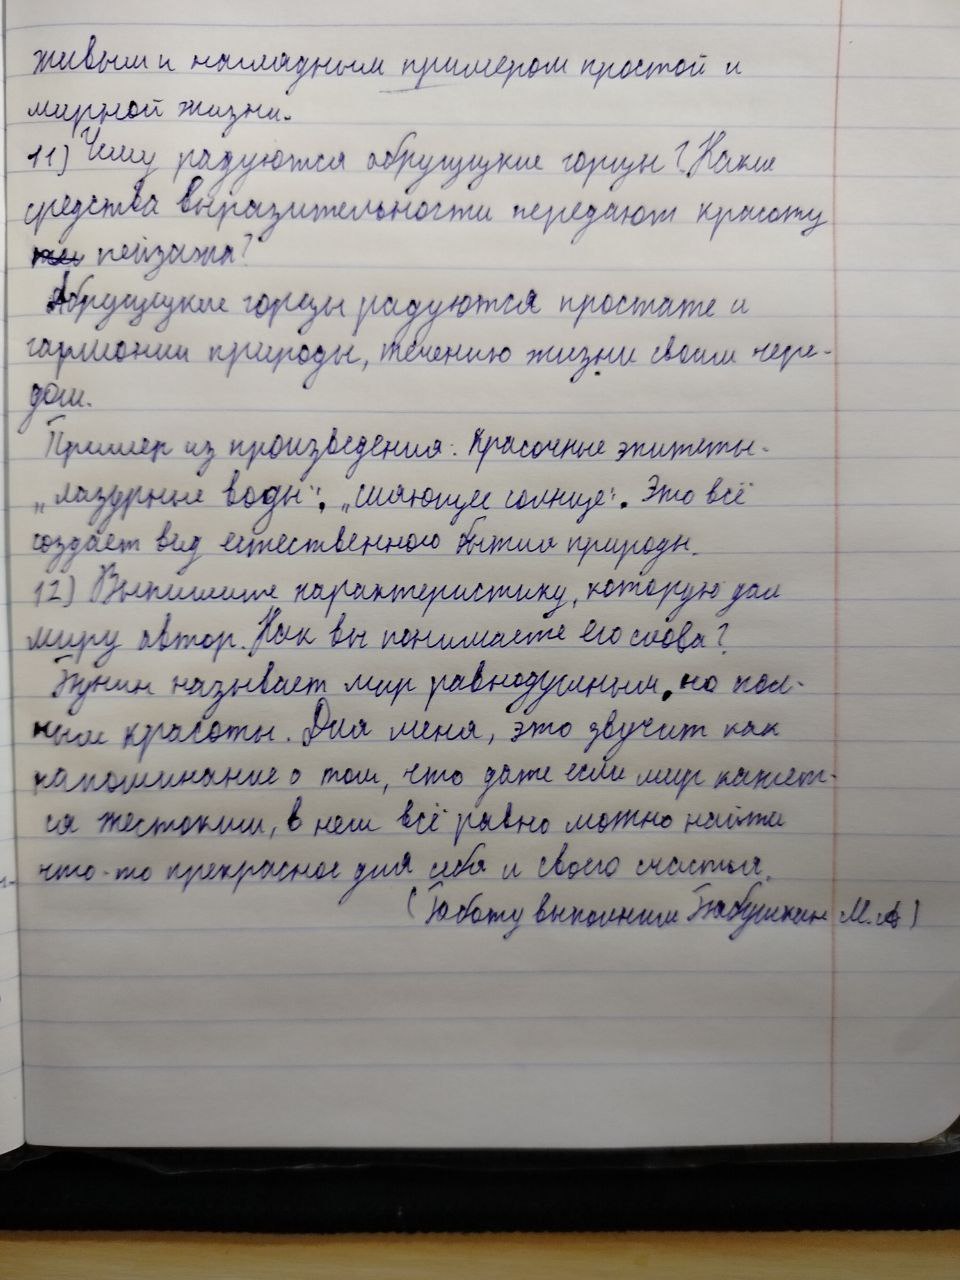 живым и наглядным примером простой и
мирной жизни.
11) Чему радуются абруццкие горцы? Какие
средства выразительности передают красоту
пейзажа?
Абруццкие горцы радуются простате и
гармонии природы, течению жизни своим чере-
дом.
Пример из произведения: Красочные эпитеты-
„лазурные воды", „сияющее солнце". Это всё
создаёт вид естественного бытия природы.
12) Выпишите характеристику, которую дал
миру автор. Как вы понимаете его слова?
Бунин называет мир равнодушным, но пол-
ным красоты. Для меня, это звучит как
напоминание о том, что даже если мир кажет-
ся жестоким, в нём всё равно можно найти
что-то прекрасное для себя и своего счастья.
(Работу выполнил Бабушкин М.А)